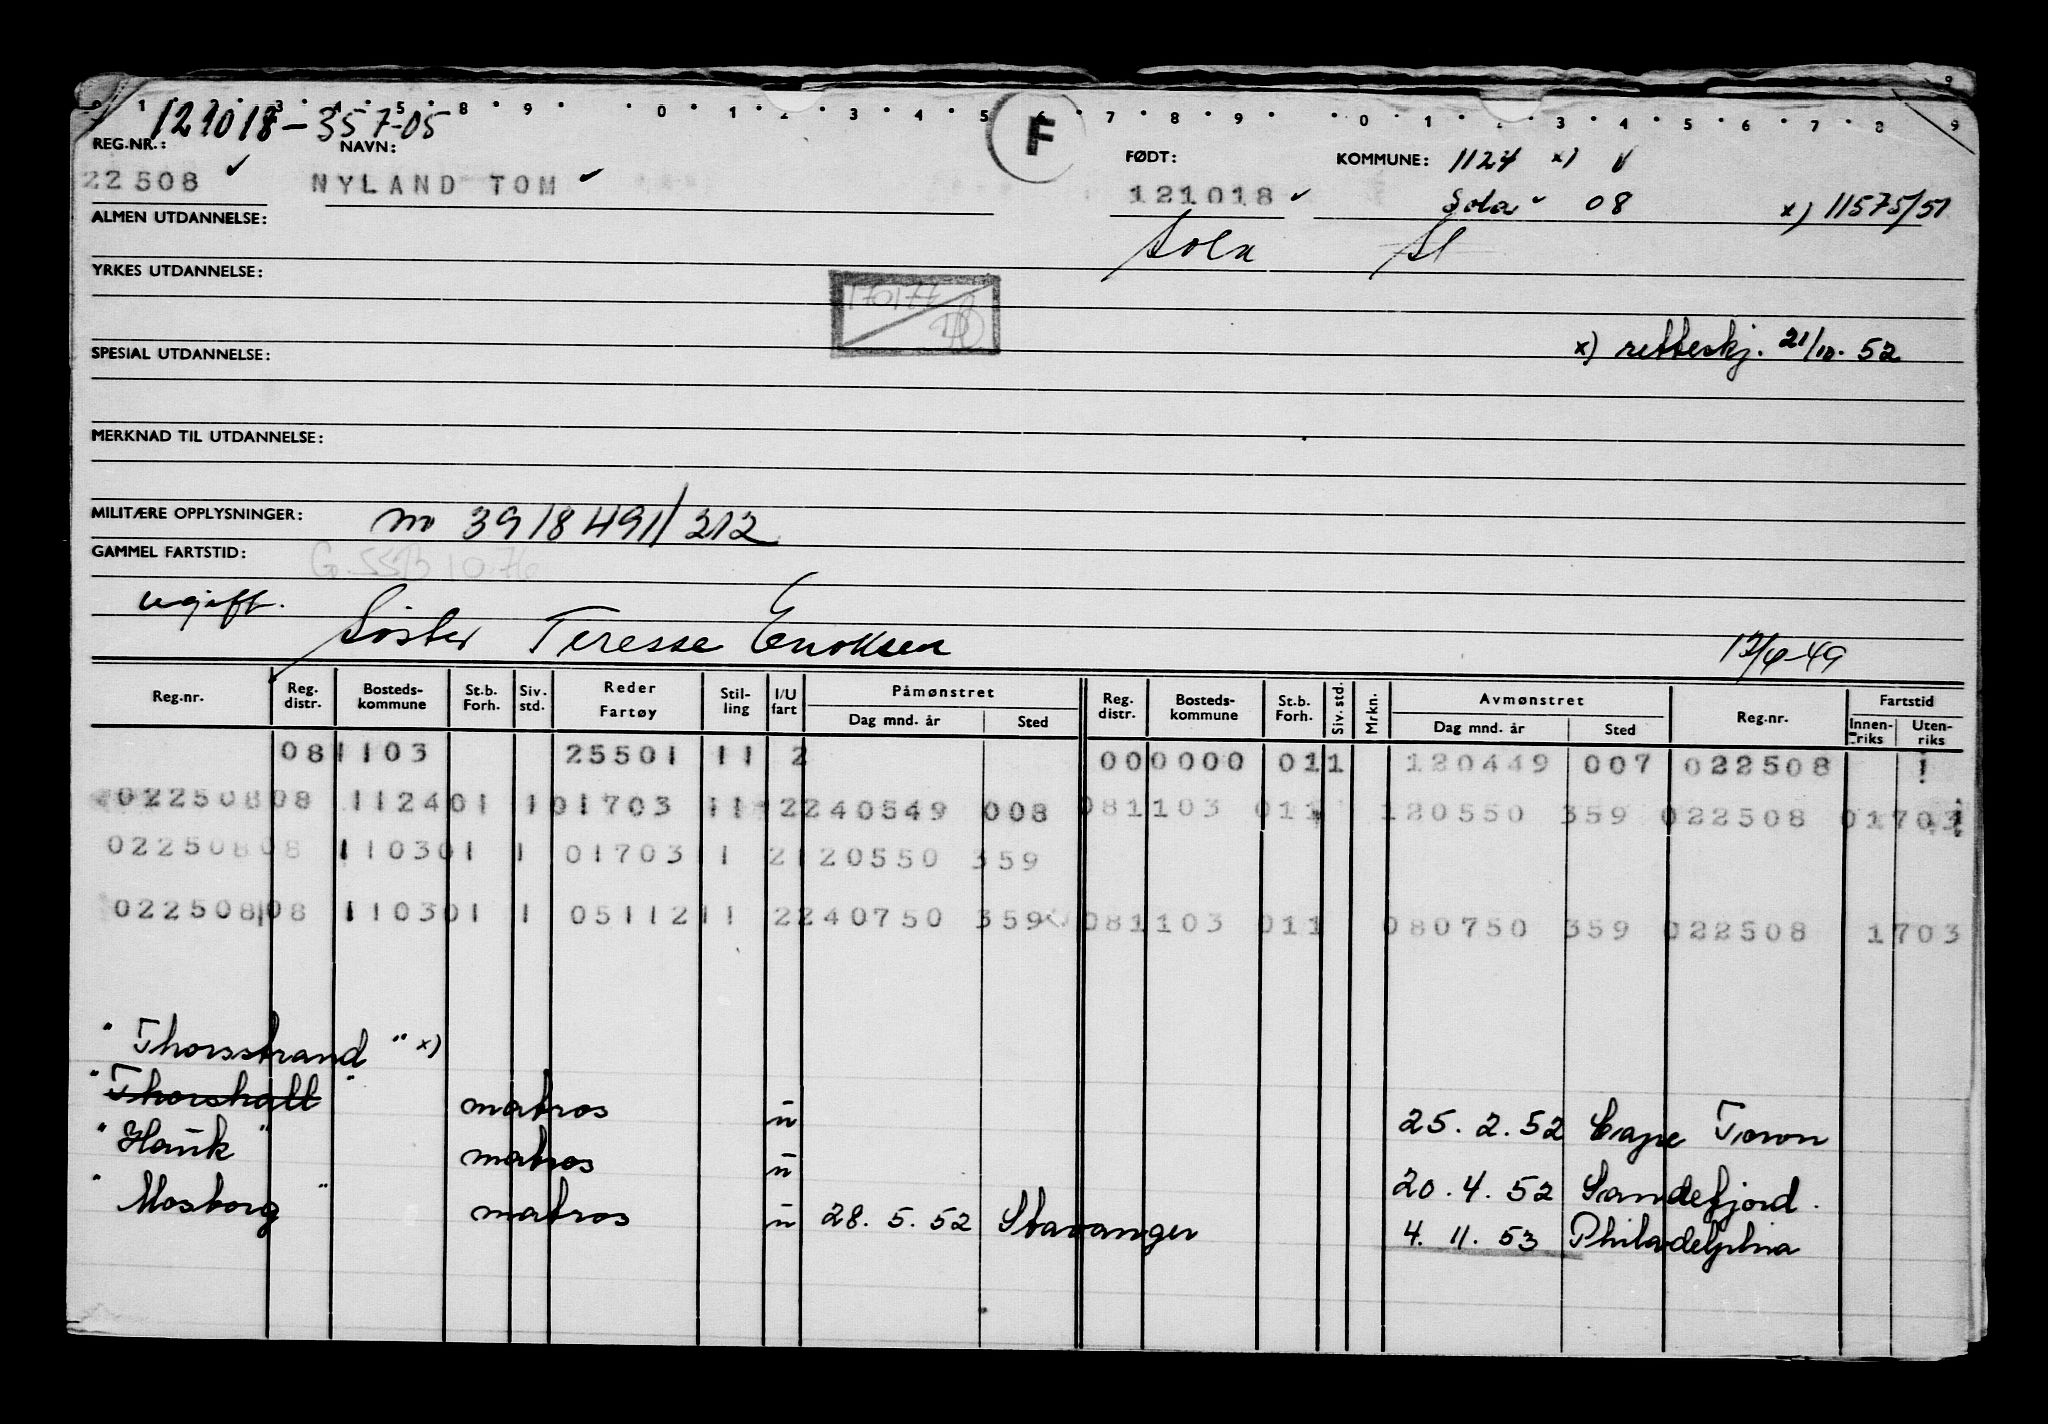 121018-357-05
REG.NR.: NAVN: F FØDT: KOMMUNE: 1124 x)
22508 NYLAND TOM 121018 Sola 08 x) 11575/51
ALMEN UTDANNELSE: Sola
YRKES UTDANNELSE:
x) retteskj. 21/10. 52
SPESIAL UTDANNELSE:
MERKNAD TIL UTDANNELSE:
MILITÆRE OPPLYSNINGER: m 3918491/212
GAMMEL FARTSTID:
ugift. Söster Teresse Enoksen 12/4-49
Reg.nr. Reg. distr. Bosteds-kommune St.b. Forh. Siv. std. Reder Fartøy Stil-ling I/U fart Påmønstret Dag mnd. år Sted Reg. distr. Bosteds-kommune St.b. Forh. Siv. std. Mrkn. Avmønstret Dag mnd. år Sted Reg.nr. Fartstid Innen-riks Uten-riks
081103 25501 11 2 000000 011 120449 007 022508
02250808 112401 101703 11 2240549 008 081103 011 120550 359 022508 01703
02250808 110301 1 01703 1 2120550 359
02250808 110301 1 0511211 2240750 359 081103 011 080750 359 022508 1703
"Thorsstrand" x)
"Thorshall" matros u 25. 2. 52 Cape Town
"Hauk" matros u 20. 4. 52 Sandefjord.
"Mosborg" matros u 28. 5. 52 Stavanger 4. 11. 53 Philadelphia